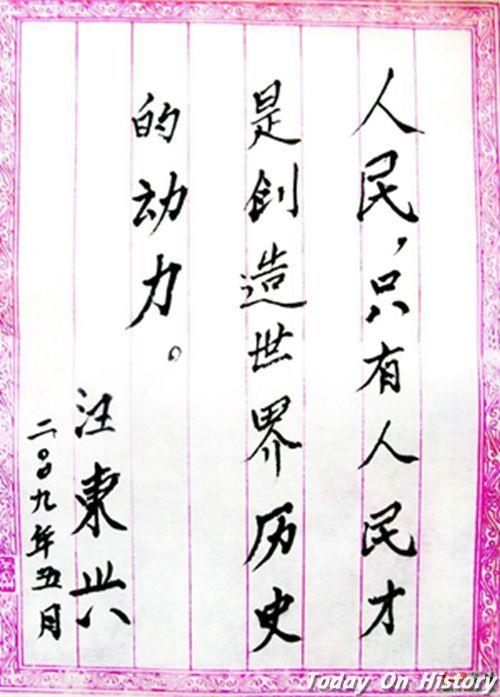 人民，只有人民才
是创造世界历史
的动力。
汪東兴
二〇〇九年五月
Today On History